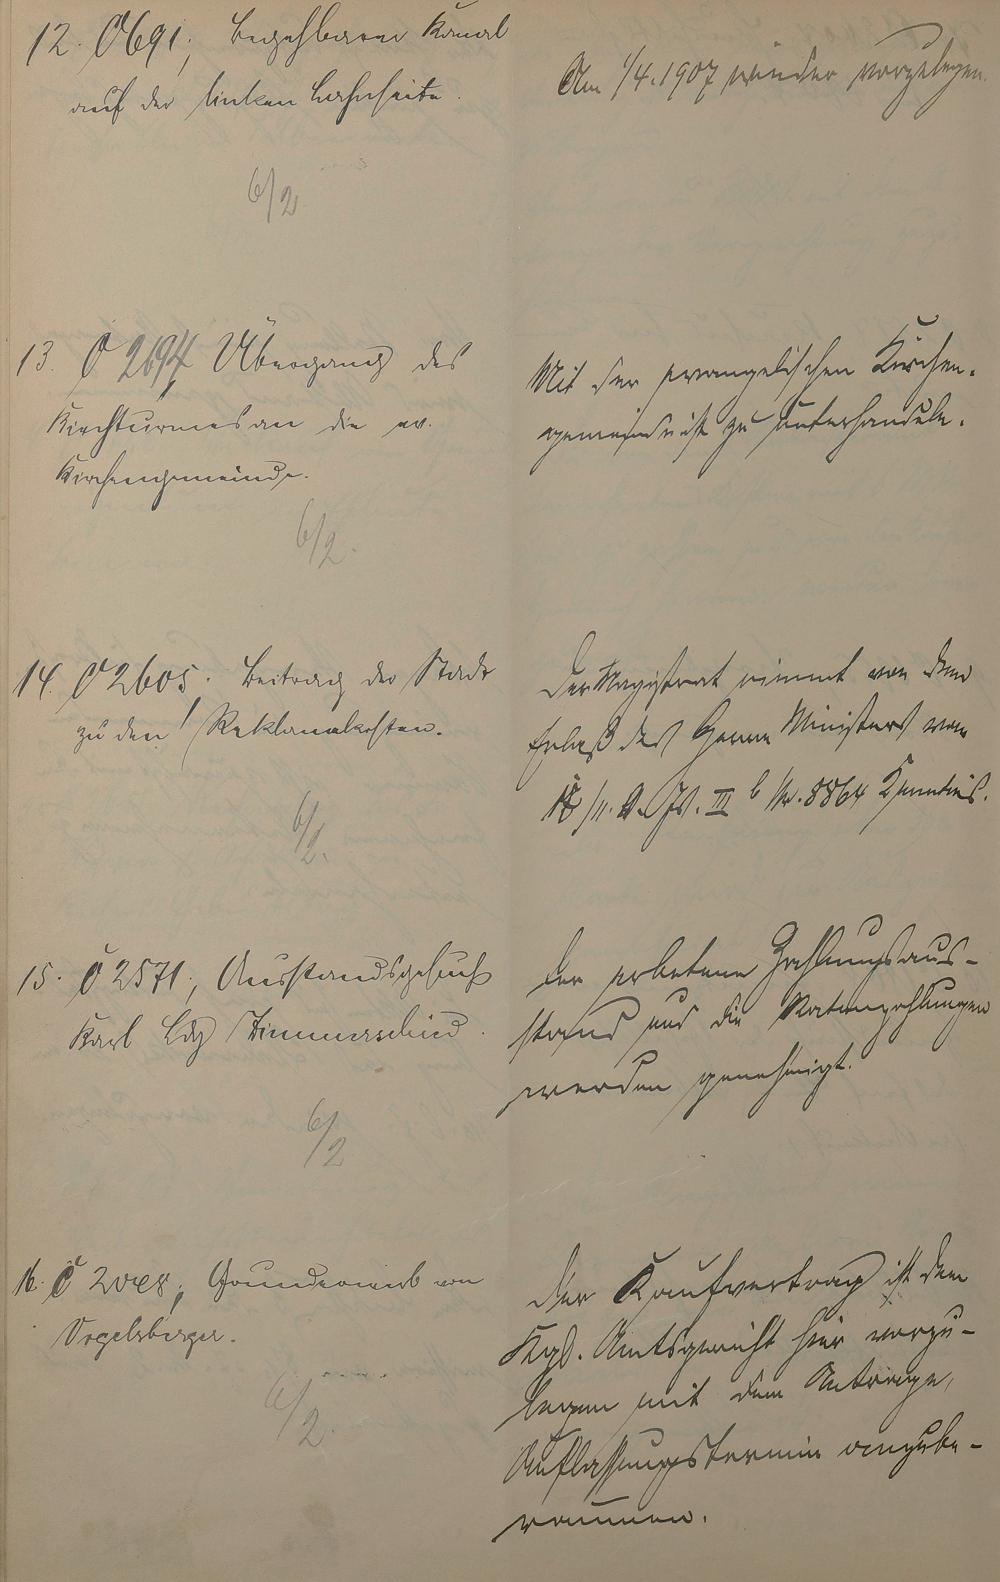 12. O 691; Begehbarer Kanal
auf der linken Lahnseite.
Am 1/4. 1907 wieder vorzulegen.
6/2
13. O 2694, Übergang des
Kirchturmes an die ev.
Kirchengemeinde.
Mit der evangelischen Kirchen-
gemeinde ist zu unterhandeln.
6/2.
14. O 2605. Beitrag der Stadt
zu den Reklamekosten.
Der Magistrat nimmt von dem
Erlaß des Herrn Ministers vom
/11. d. Js. III b Nr. 8864 Kenntnis.
6/2.
15. O 2571; Ausstandsgesuch
Karl Ldg Zimmerschied.
Der erbetene Zahlungsaus-
stand und die Ratenzahlungen
werden genehmigt.
6/2
16. O; Grunderwerb von
Vogelsberger.
Der Kaufvertrag ist dem
Kgl. Amtsgericht hier vorzu-
legen mit dem Antrage,
Auflassungstermin anzube-
raumen.
6/2.